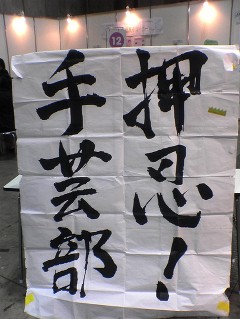 押忍！
手芸部
12